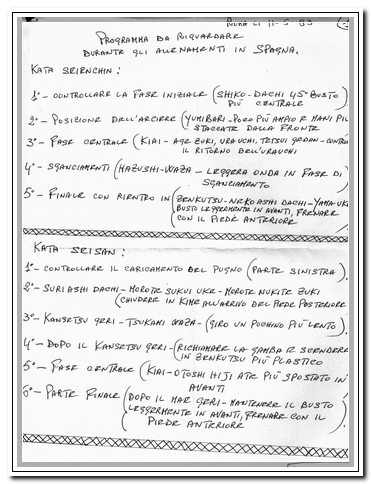 11-5-83
PROGRAMMA DA RIGUARDARE
DURANTE GLI ALLENAMENTI IN SPAGNA.
KATA SEIENCHIN:
1°- CONTROLLARE LA FASE INIZIALE (SHIKO-DACHI 45° BUSTO
PIÙ CENTRALE
2°- POSIZIONE DELL'ARCIERE (YUMIBARI-POCO PIÙ AMPIO E MANI PIÙ
STACCATE DALLA FRONTE
3°- FASE CENTRALE (KIAI- AGE ZUKI, URAUCHI, TETSUI GEDAN-CONTRO
IL RITORNO DELL'URAUCHI
4°- SGANCIAMENTI (HAZUSHI-WAZA - LEGGERA ONDA IN FASE DI
SGANCIAMENTO
5°- FINALE CON RIENTRO IN (ZENKUTSU-NEKOASHI DACHI-YAMA UKE
BUSTO LEGGERMENTE IN AVANTI, FRENARE
CON IL PIEDE ANTERIORE
KATA SEISAN:
1°- CONTROLLARE IL CARICAMENTO DEL PUGNO (PARTE SINISTRA).
2°- SURIASHI DACHI-MOROTE SUKUI UKE-MOROTE NUKITE ZUKI
(CHIUDERE IN KIME ALL'ARRIVO DEL PIEDE POSTERIORE
3°- KANSETSU GERI-TSUKAMI WAZA-(GIRO UN POCHINO PIÙ LENTO).
4°- DOPO IL KANSETSU GERI-(RICHIAMARE LA GAMBA E SCENDERE
IN ZENKUTSU PIÙ PLASTICO
5°- FASE CENTRALE (KIAI-OTOSHI HIJI ATE PIÙ SPOSTATO IN
AVANTI
6°- PARTE FINALE (DOPO IL MAE GERI-MANTENERE IL BUSTO
LEGGERMENTE IN AVANTI, FRENARE CON IL
PIEDE ANTERIORE